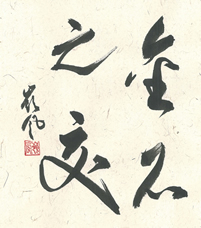 金石
之交